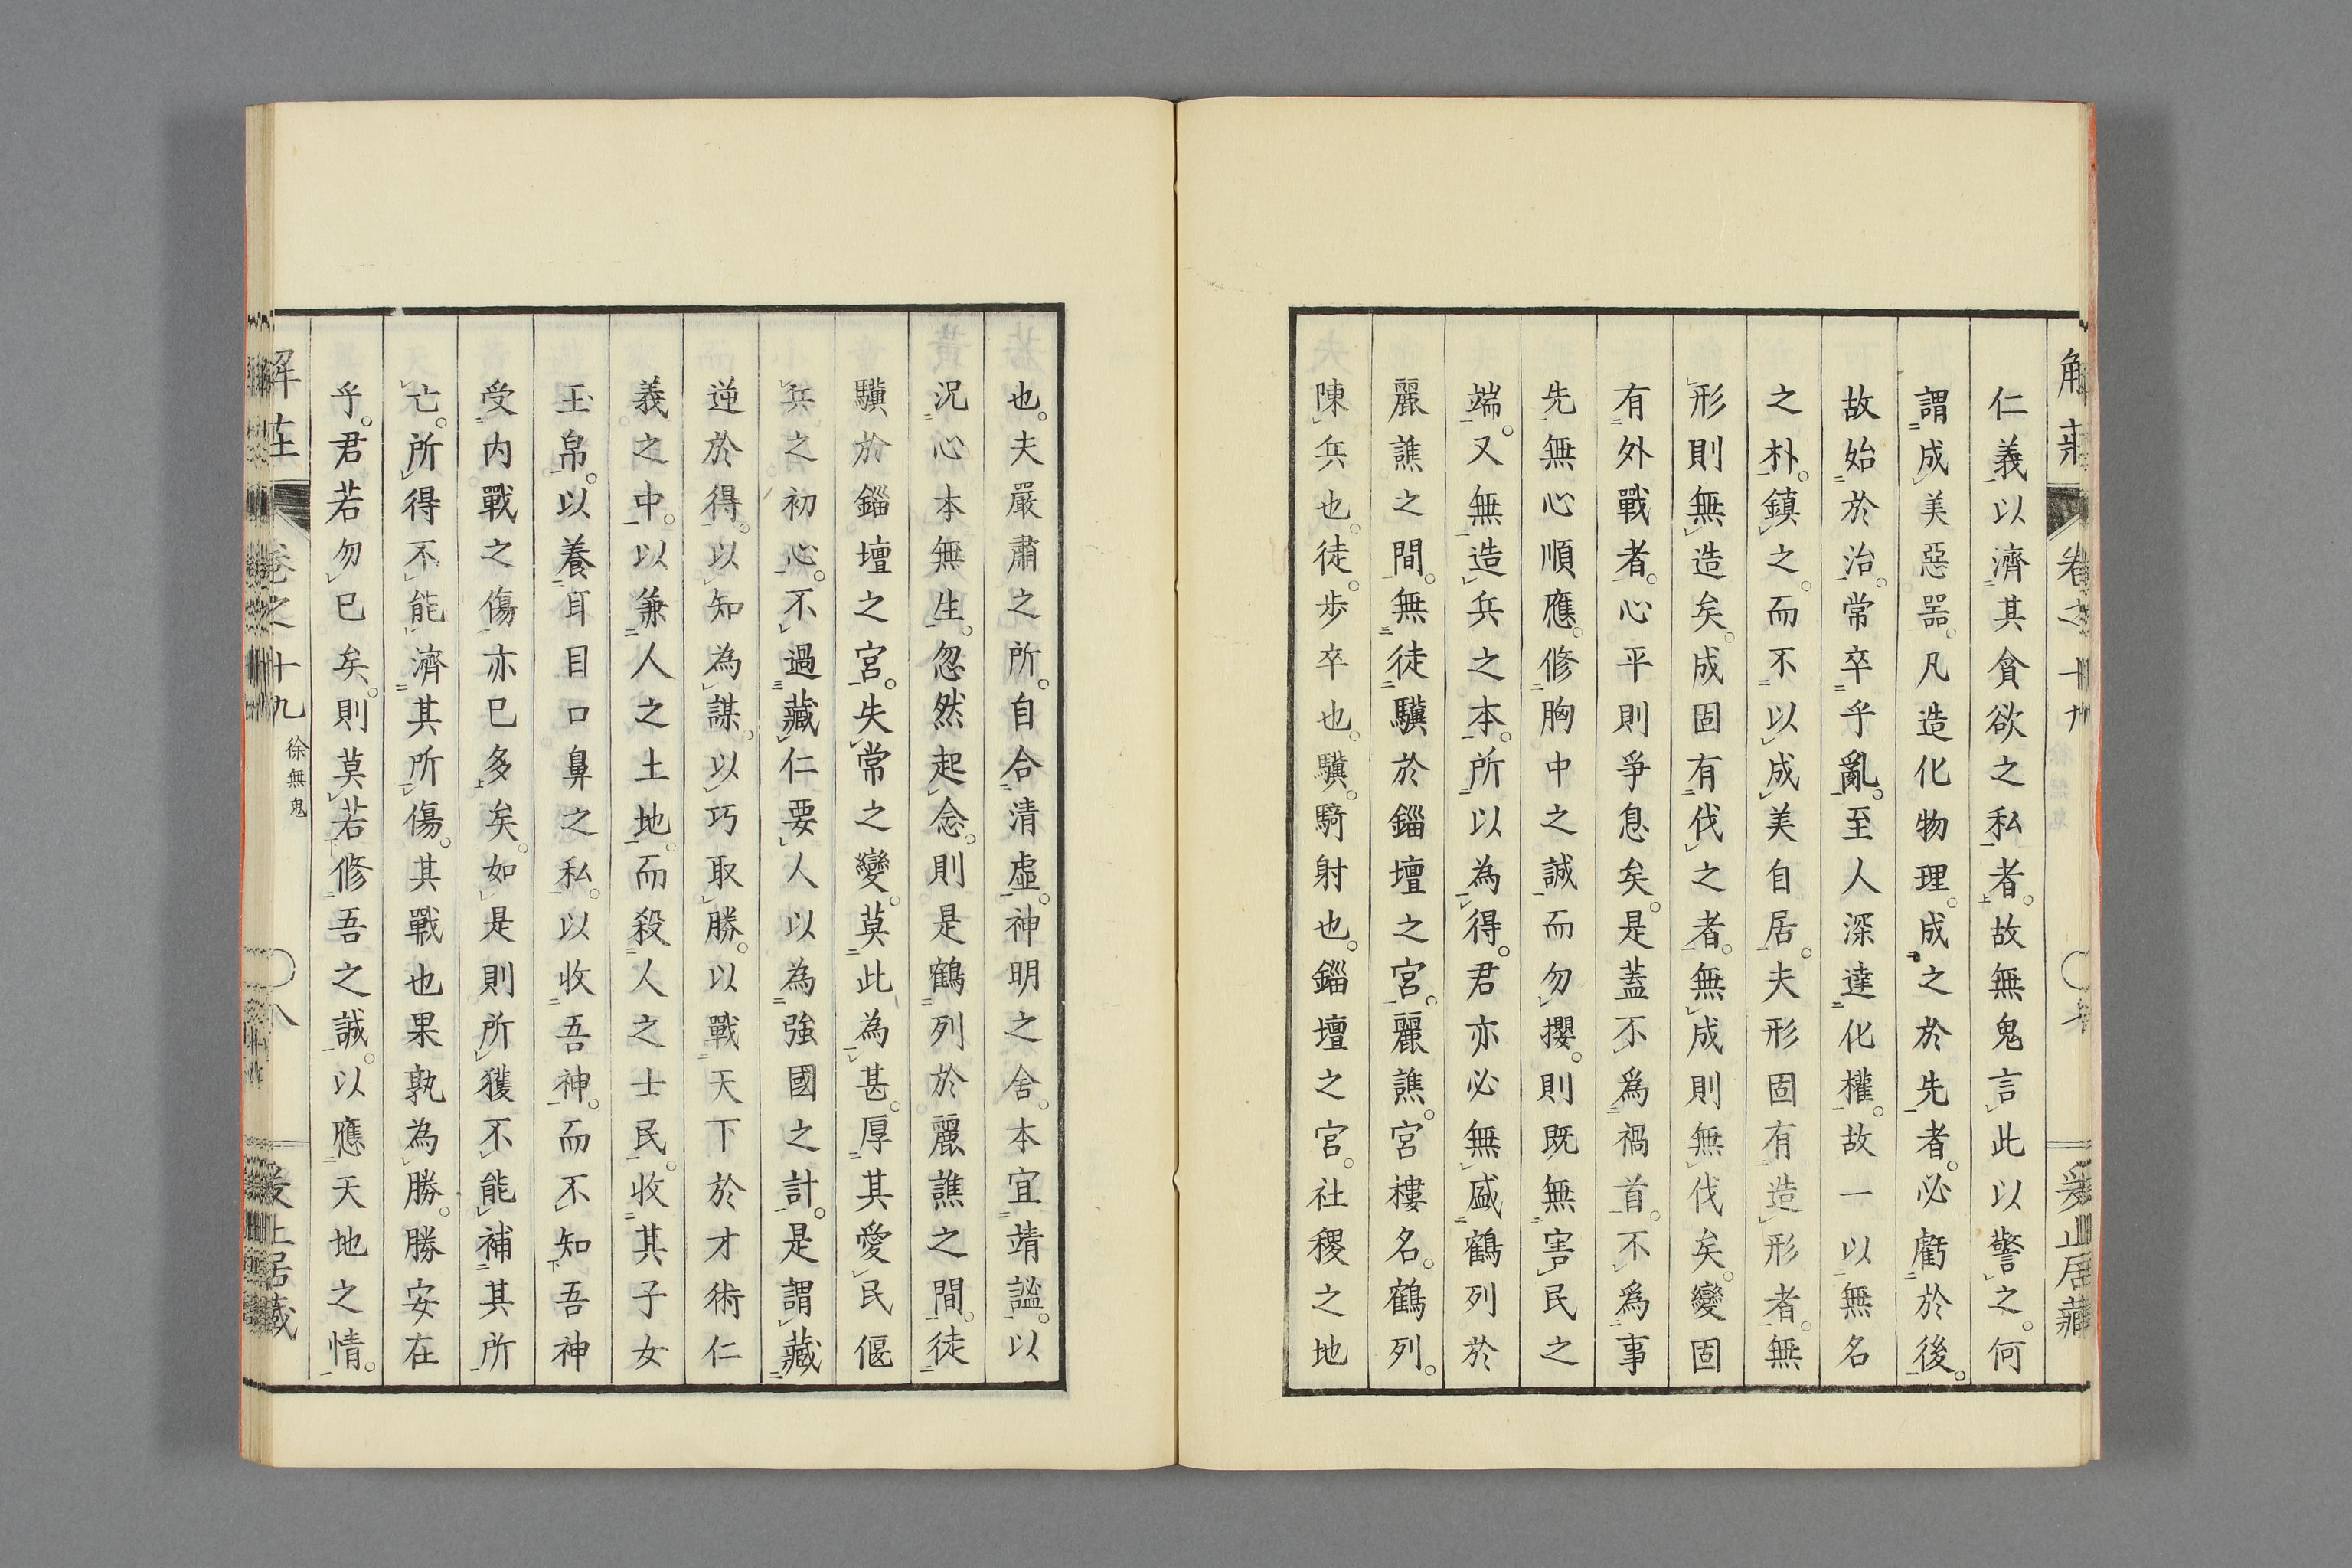 仁義以濟其貪欲之私者。故無鬼言此以警之。何
謂成美惡噐。凡造化物理。成之於先者。必虧於後。
故始於治。常卒乎亂。至人深達化權。故一以無名
之朴。鎮之。而不以成美自居。夫形固有造形者。無
形則無造矣。成固有伐之者。無成則無伐矣。變固
有外戰者。心平則爭息矣。是蓋不爲禍首。不爲事
先。無心順應。修胸中之誠而勿攖。則既無害民之
端。又無造兵之本。所以為得。君亦必無盛鶴列於
麗譙之間。無徒驥於錙壇之宮。麗譙。宮樓名。鶴列。
陳兵也。徒。步卒也。驥。騎射也。錙壇之宮。社稷之地
也。夫嚴肅之所。自合清虛。神明之舍。本宜靖謐。以
況心本無生。忽然起念。則是鶴列於麗譙之間。徒
驥於錙壇之宮。失常之變。莫此為甚。厚其愛民偃
兵之初心。不過藏仁要人以為強國之計。是謂藏
逆於得。以知為謀。以巧取勝。以戰天下於才術仁
義之中。以兼人之土地。而殺人之士民。收其子女
玉帛。以養耳目口鼻之私。以收吾神。而不知吾神
受內戰之傷亦已多矣。如是則所獲不能補其所
亡。所得不能濟其所傷。其戰也果孰為勝。勝安在
乎。君若勿已矣。則莫若修吾之誠。以應天地之情。
解莊
卷之十九
徐無鬼
八